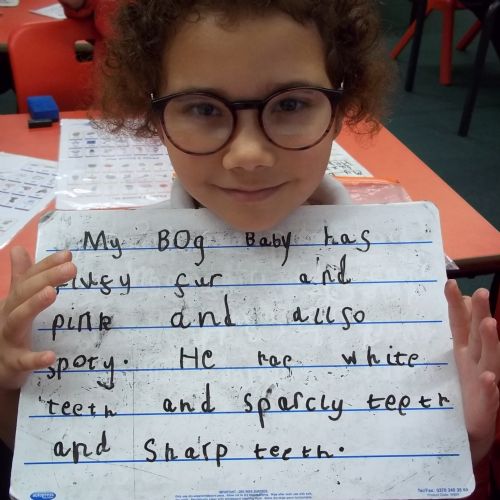 My BOg Baby has
fur and
pink and allso
spoty. He has white
teeth and sparcly teeth
and Sharp teeth.